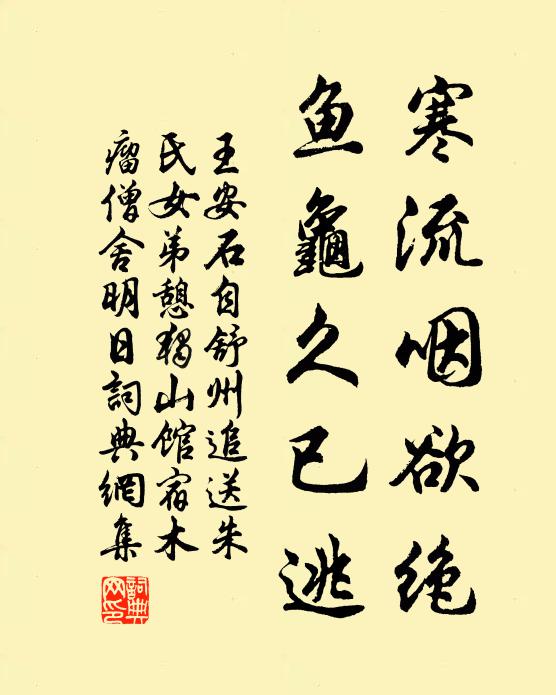 寒流咽欲绝
鱼龜久已逃
王安石自舒州追送朱
氏女弟憩獨山馆宿木
瘤僧舍明日詞典網集